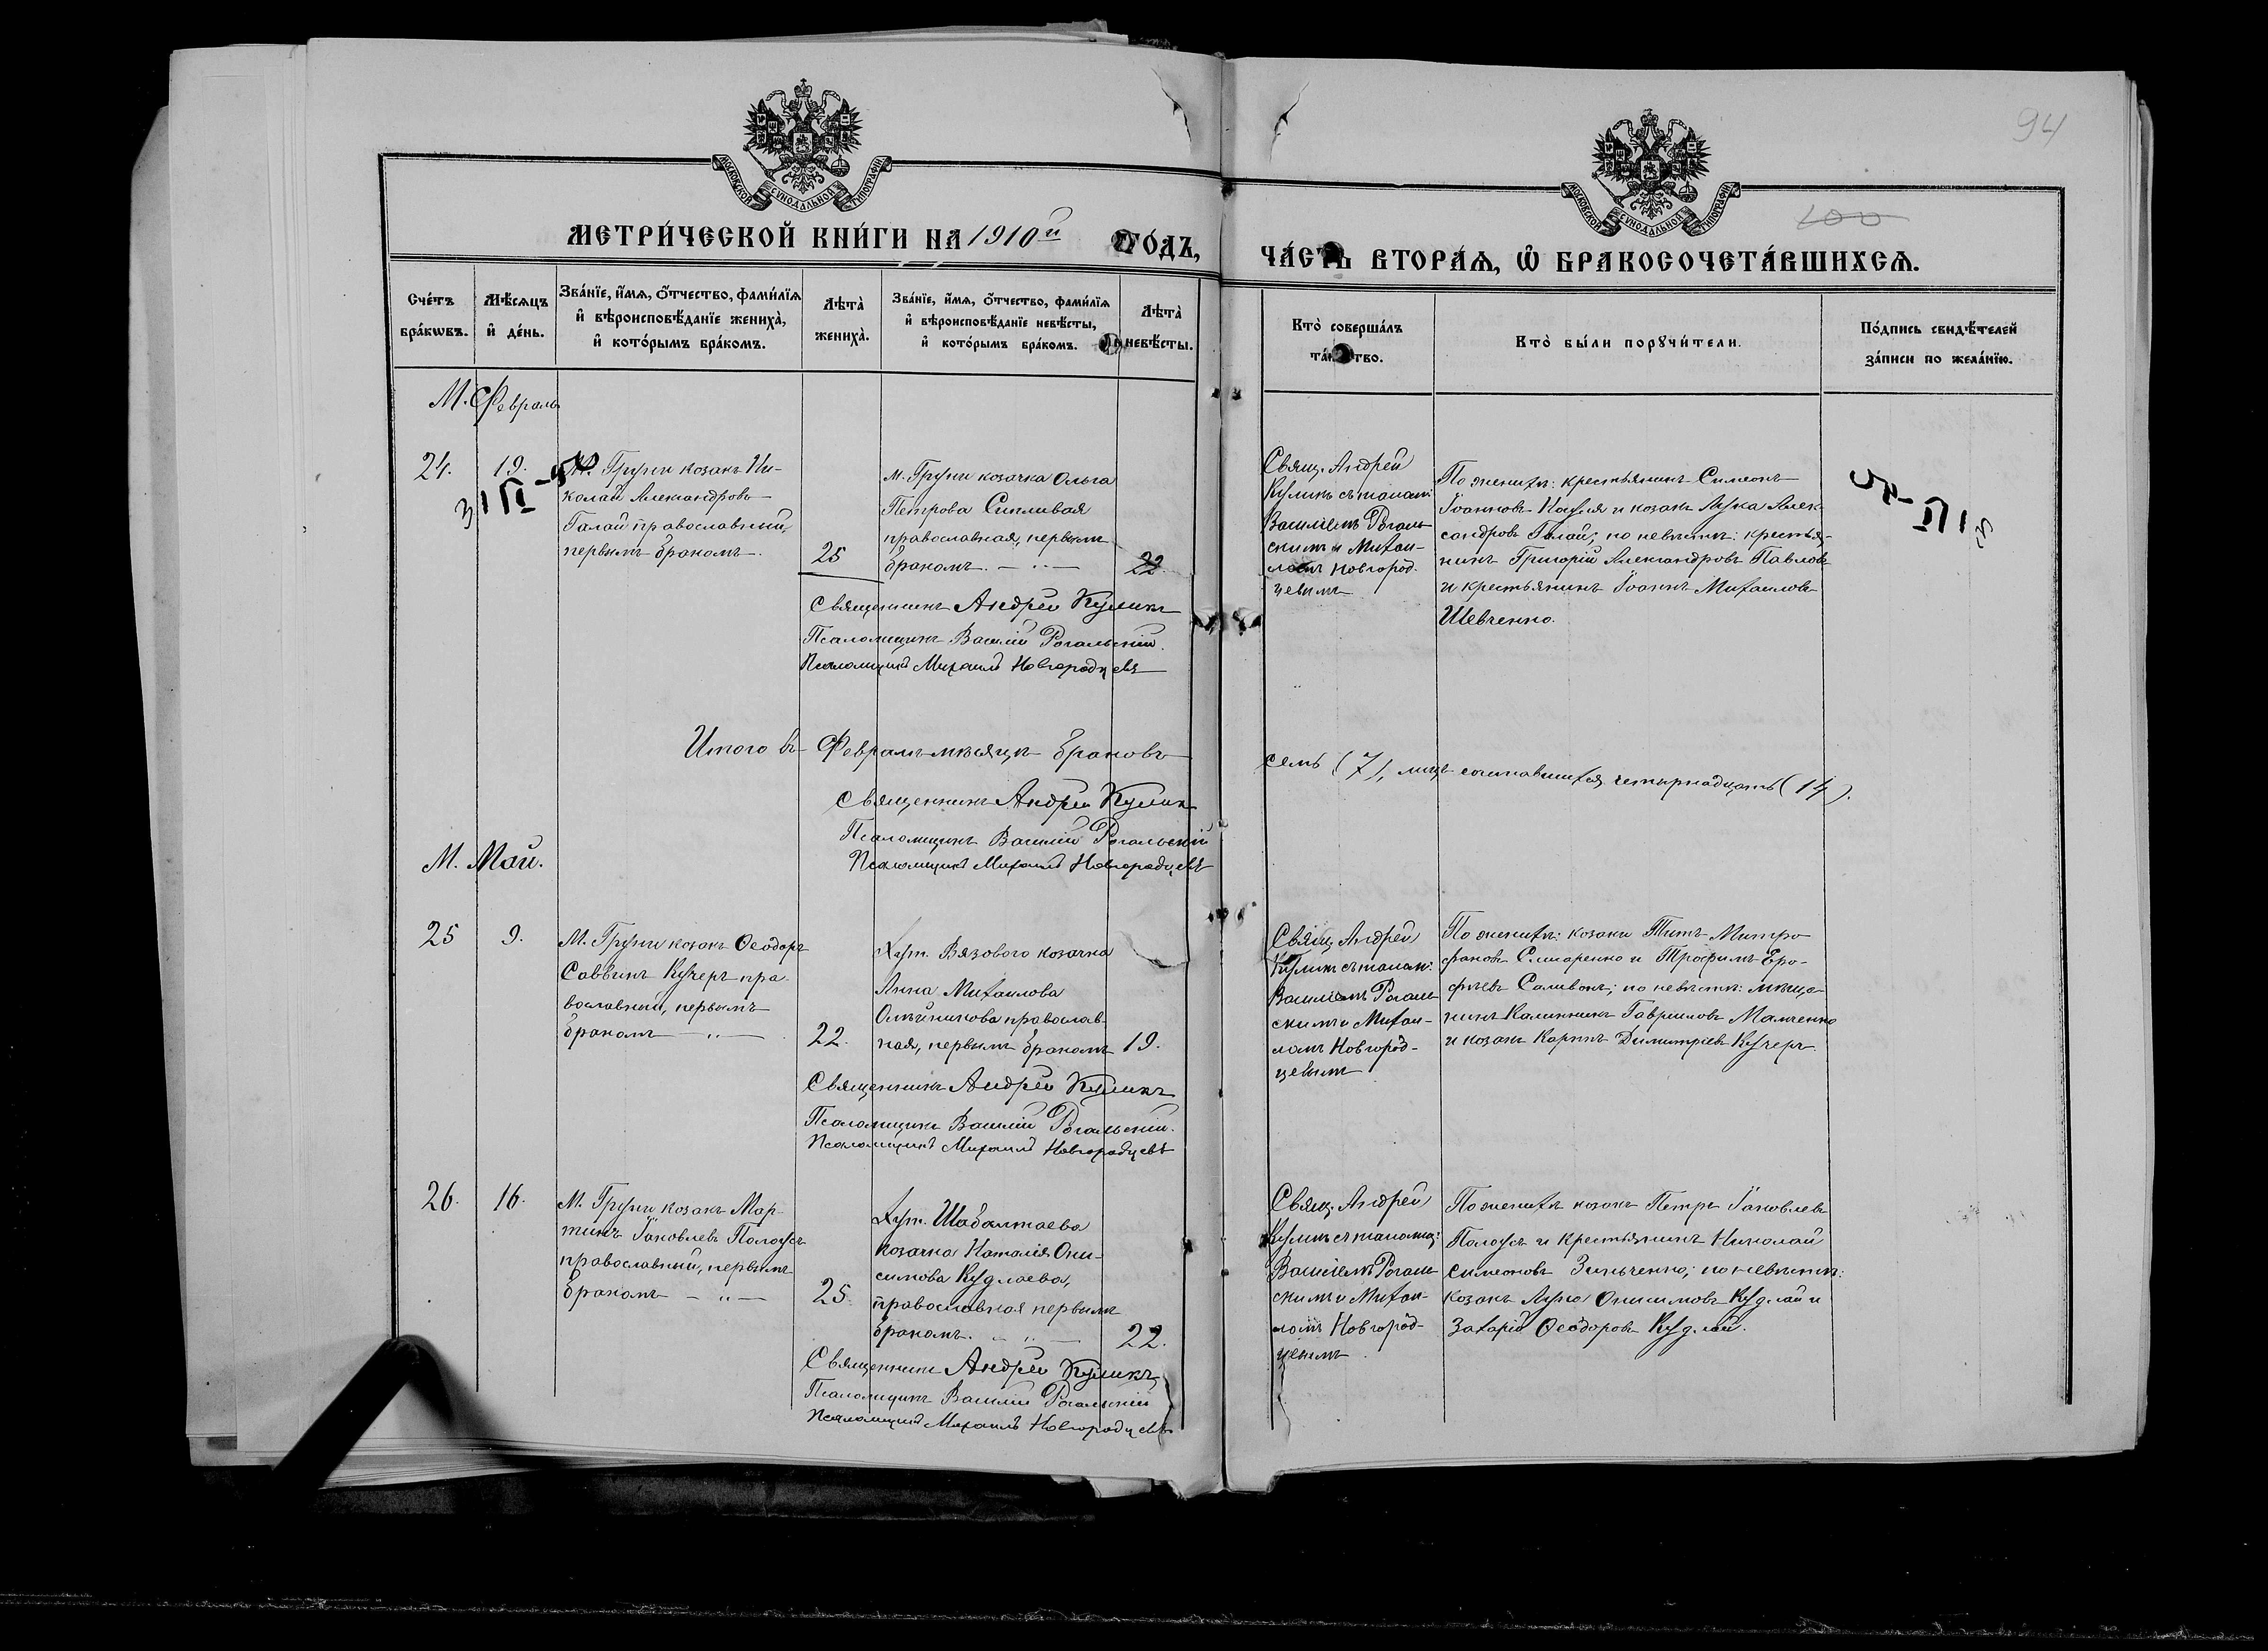 94
МОСКОВСКОЙ СѴНОДАЛЬНОЙ ТИПОГРАФІИ
МОСКОВСКОЙ СѴНОДАЛЬНОЙ ТИПОГРАФІИ
100
МЕТРИ́ЧЕСКОЙ КНИ́ГИ НА 1910й ГО́ДЪ,
ЧА́СТЬ ВТОРА́Ѧ, Ѡ҆ БРАКОСОЧЕТА́ВШИХСѦ.
Сче́тъ бра́кѡвъ.
Мѣ́сѧцъ и҆ де́нь.
Зва́нїе, и҆́мѧ, о҆́тчество, фами́лїѧ
и҆ вѣроисповѣ́данїе жениха̀,
и҆ кото́рымъ бра́комъ.
Лѣта̀ жениха̀.
Зва́нїе, и҆́мѧ, о҆́тчество, фами́лїѧ
и҆ вѣроисповѣ́данїе невѣ́сты,
и҆ кото́рымъ бра́комъ.
Лѣта̀ невѣ́сты.
Кто̀ соверша́лъ
та́инство.
Кто̀ бы́ли порꙋчи́тели.
По́дпись свидѣ́телей
за́писи по жела́нїю.
М. Февраль
24.
19.
М. Груни козакъ Ни-
колай Александровъ
Галай православный,
первымъ бракомъ.
25
м. Груни козачка Ольга
Петрова Сипливая
православная, первымъ
бракомъ. — „ —
22.
Свящ. Андрей
Куликъ съ псалом:
Василіемъ Рогаль-
скимъ и Михаи-
ломъ Новгород-
цевымъ
По женихѣ: крестьянинъ Симеонъ
Іоанновъ Науля и козакъ Лука Алек-
сандровъ Галай; по невѣстѣ: крестья-
нинъ Григорій Александровъ Павловъ
и крестьянинъ Іоаннъ Михаиловъ
Шевченко.
Священникъ Андрей Куликъ
Псаломщикъ Василій Рогальскій.
Псаломщикъ Михаилъ Новгородцевъ
Итого въ Февралѣ мѣсяцѣ браковъ
семь (7), лицъ сочетавшихся четырнадцать (14).
Священникъ Андрей Куликъ
Псаломщикъ Василій Рогальскій
Псаломщикъ Михаилъ Новгородцевъ
М. Май.
25
9.
М. Груни козакъ Ѳеодоръ
Саввинъ Кучеръ пра-
вославный, первымъ
бракомъ — „ —
22.
Хут. Вязового козачка
Анна Михаилова
Олѣйникова православ-
ная, первымъ бракомъ
19.
Свящ. Андрей
Куликъ съ псалом:
Василіемъ Рогаль-
скимъ и Михаи-
ломъ Новгород-
цевымъ
По женихѣ: козаки Титъ Митро
фановъ Слюаренко и Трофимъ Еро-
фѣевъ Саливонъ; по невѣстѣ: мѣща-
нинъ Калинникъ Гавриловъ Мамченко
и козакъ Карпъ Димитріевъ Кучеръ.
Священникъ Андрей Куликъ
Псаломщикъ Василій Рогальскій.
Псаломщикъ Михаилъ Новгородцевъ
26.
16.
М. Груни козакъ Мар-
тинъ Іаковлевъ Полоусъ
православный, первымъ
бракомъ — „ —
25.
Хут. Шабалтаева
козачка Наталія Они-
симова Кудлаева,
православная первымъ
бракомъ. — „ —
22.
Свящ. Андрей
Куликъ съ псаломщ:
Василіемъ Рогаль-
скимъ и Михаи-
ломъ Новгород-
цевымъ
По женихѣ козакъ Петръ Іаковлевъ
Полоусъ и крестьянинъ Николай
Симеоновъ Зинченко; по невѣстѣ:
козакъ Лука Онисимовъ Кудлай и
Захарій Ѳеодоровъ Кудлай.
Священникъ Андрей Куликъ
Псаломщикъ Василій Рогальскій
Псаломщикъ Михаилъ Новгородцевъ